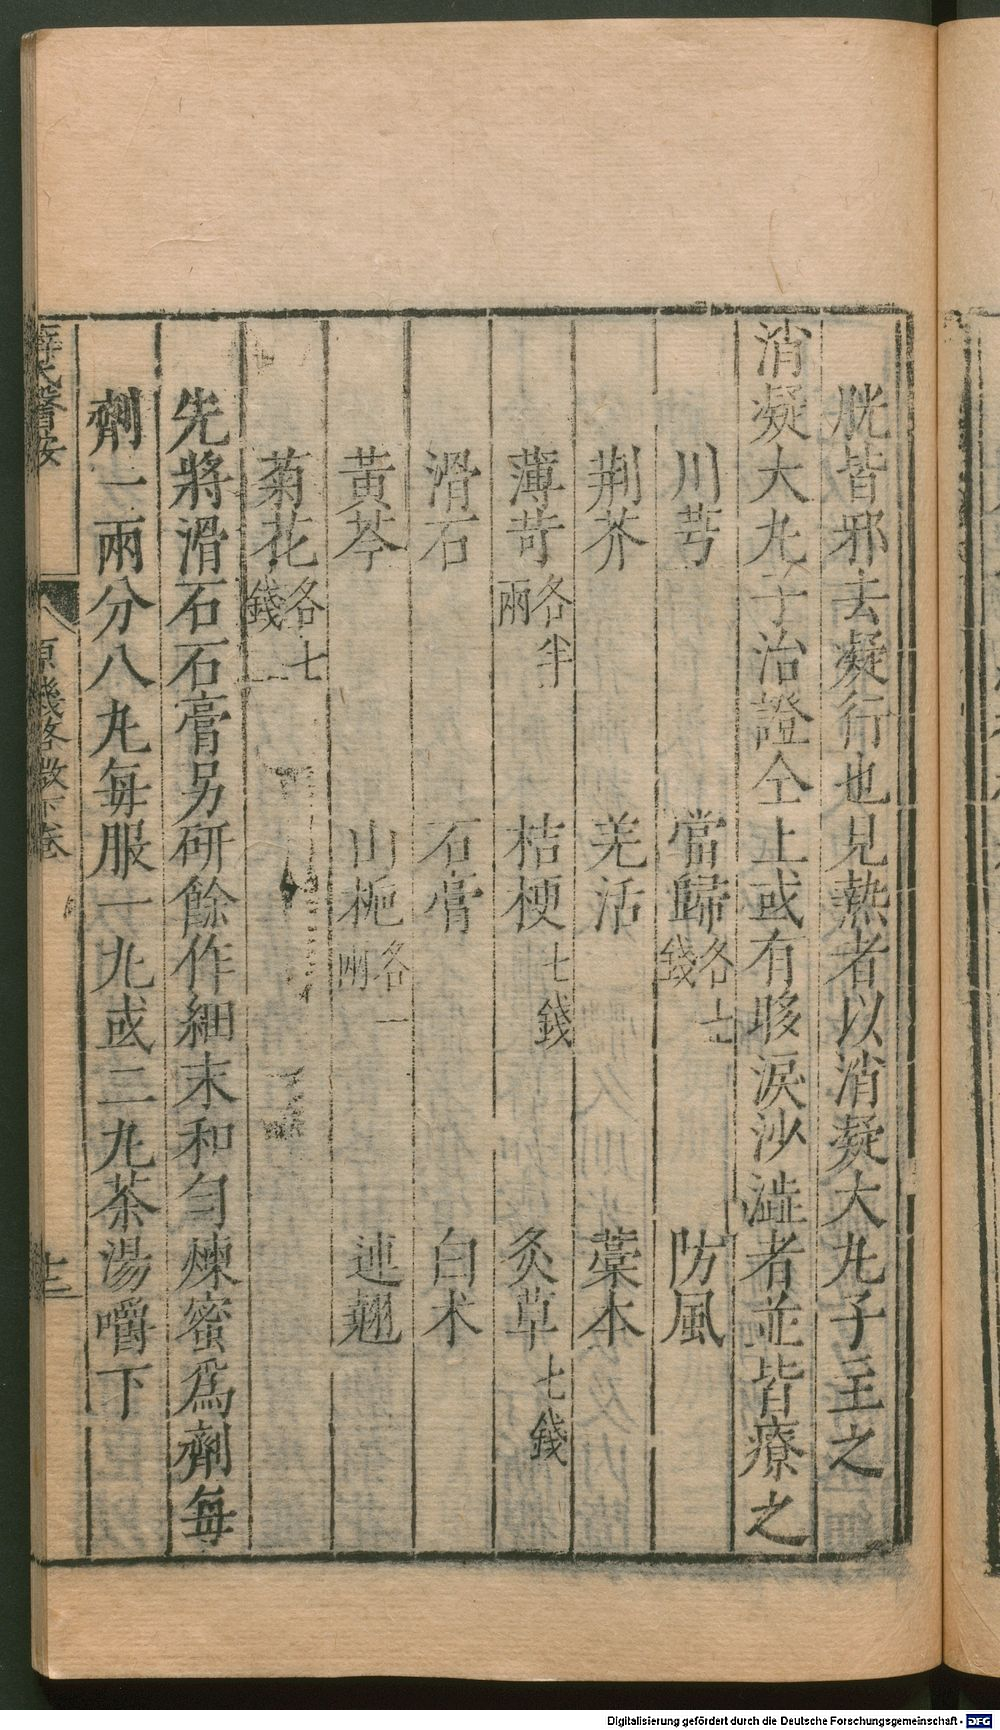 胱皆邪去凝行也見熱者以消凝大丸子主之
消凝大丸子治證仝上或有眵淚沙澁者並皆療之
川芎 當歸各七錢 防風
荆芥 羌活 藁本
薄苛各半兩 桔梗七錢 炙草七錢
滑石 石膏 白术
黃芩 山梔各一兩 連翹
菊花各七錢
先將滑石石膏另研餘作細末和勻煉蜜爲劑每
劑一兩分八丸每服一丸或二丸茶湯嚼下
薛氏醫按 原機啓微下卷 十二
Digitalisierung gefördert durch die Deutsche Forschungsgemeinschaft - DFG